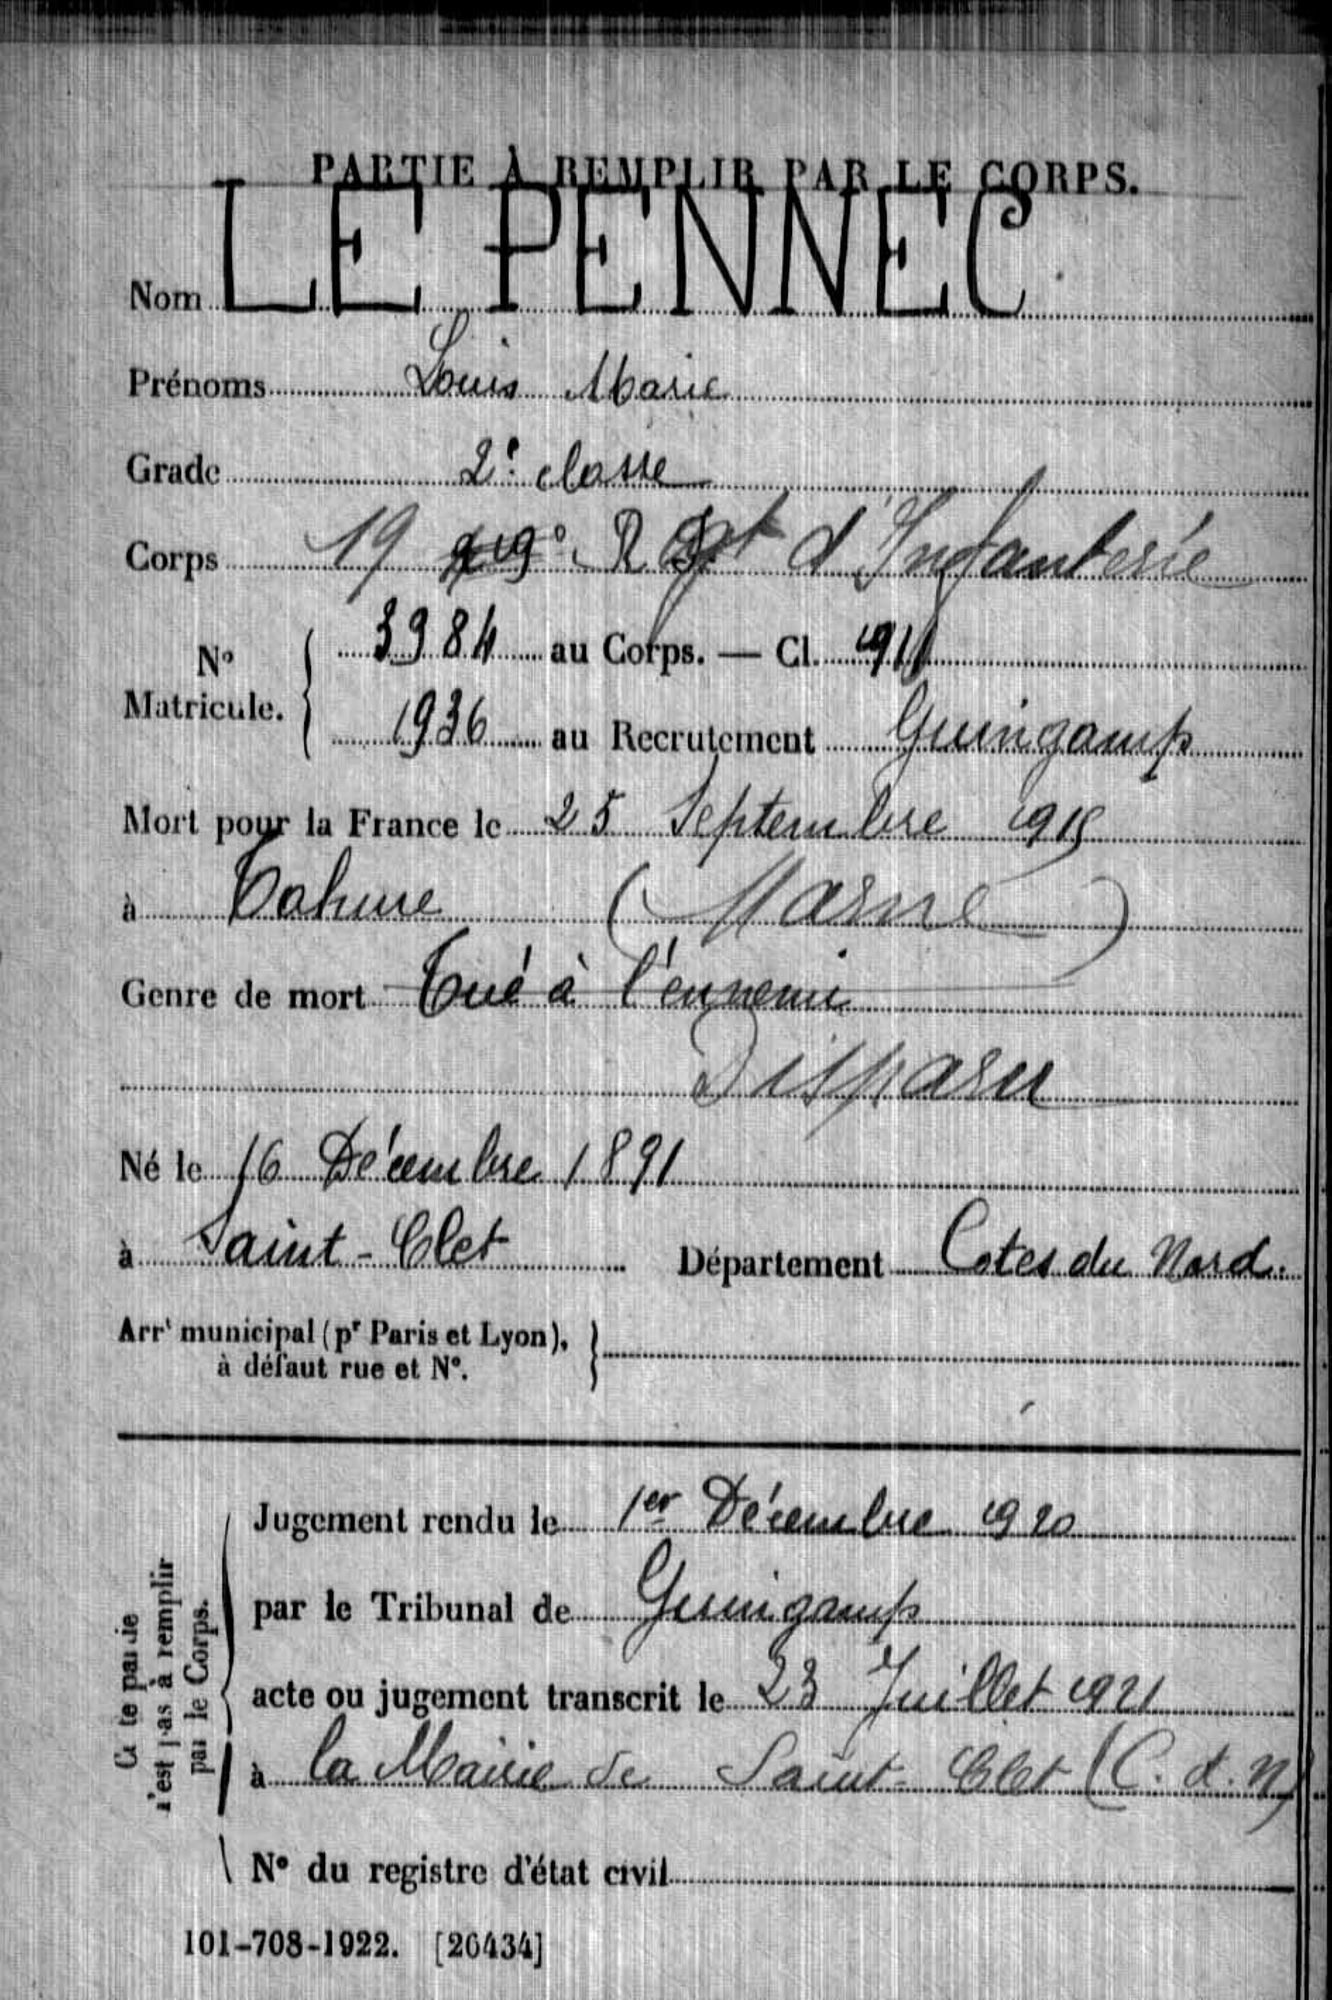 PARTIE À REMPLIR PAR LE CORPS.
Nom LE PENNEC
Prénoms Louis Marie
Grade 2e classe
Corps 19 Rgt d'Infanterie
No Matricule. 3984 au Corps. — Cl. 1911
1936 au Recrutement Guingamp
Mort pour la France le 25 Septembre 1915
à Tahure (Marne)
Genre de mort Tué à l'ennemi
Disparu
Né le 16 Décembre 1891
à Saint-Clet Département Cotes du Nord.
Arrt municipal (pr Paris et Lyon),
à défaut rue et No.
Cette partie
n'est pas à remplir
par le Corps.
Jugement rendu le 1er Décembre 1920
par le Tribunal de Guingamp
acte ou jugement transcrit le 23 Juillet 1921
à la Mairie de Saint-Clet (C. d. N)
No du registre d'état civil
101-708-1922. [26434]